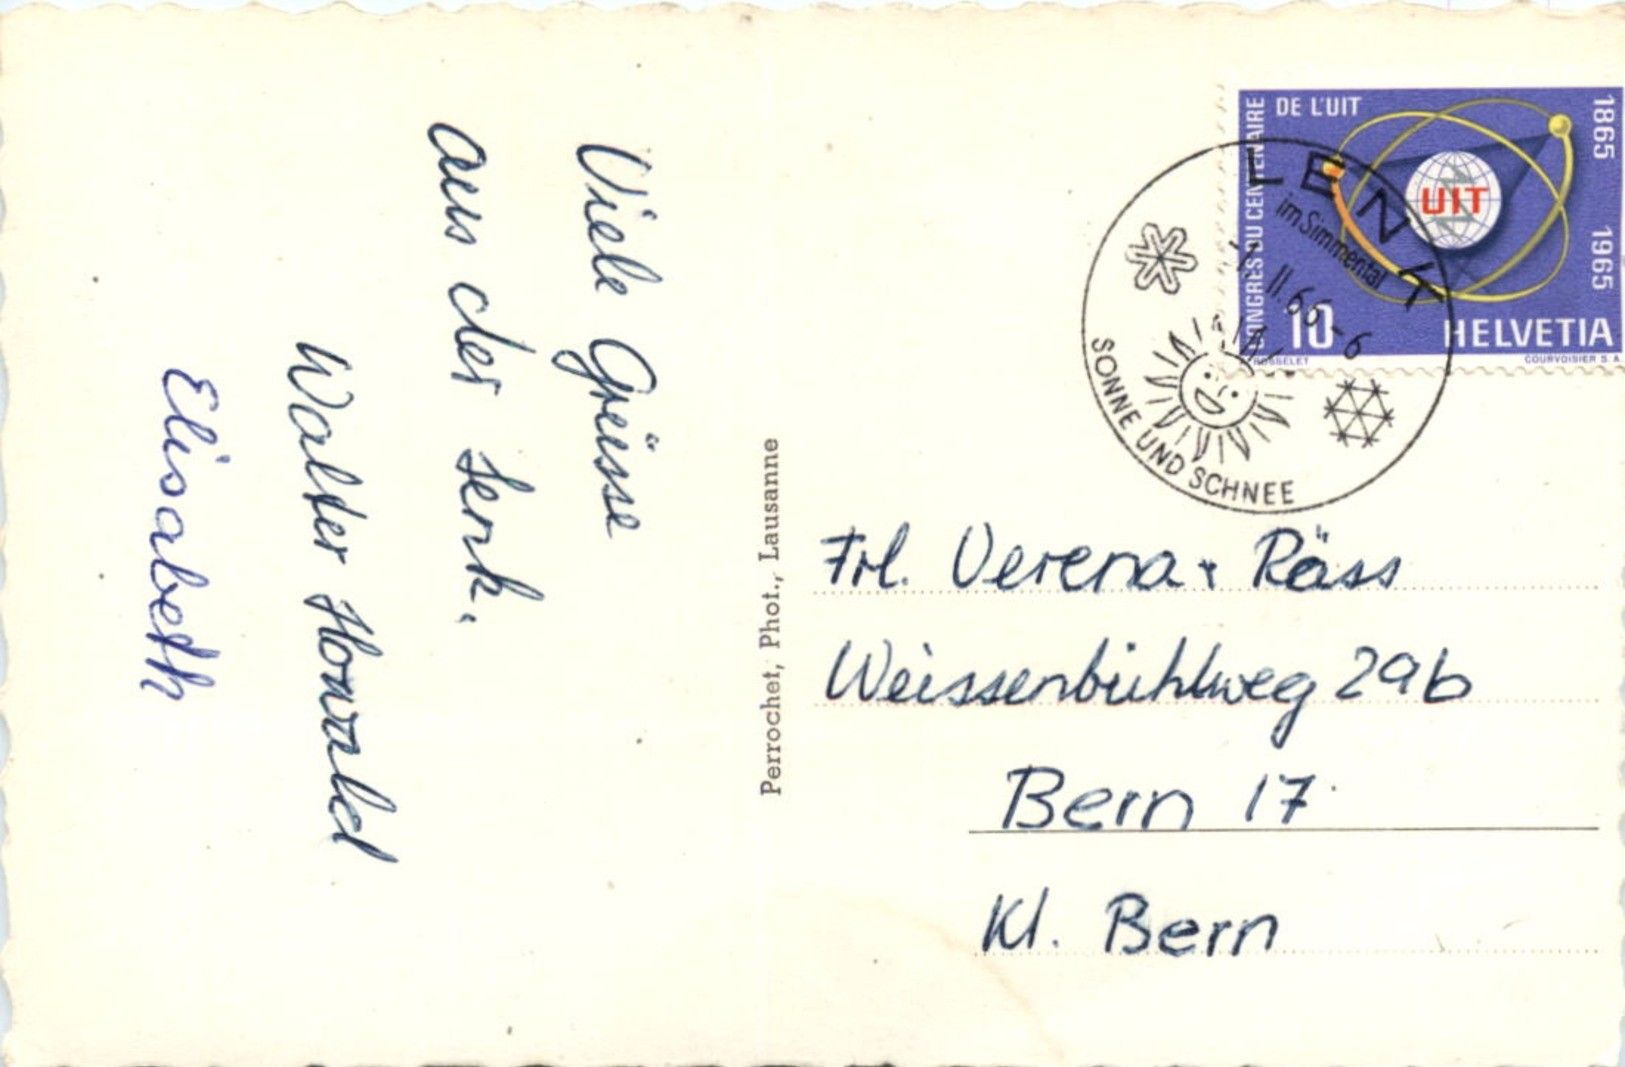 Viele Grüsse
aus der Lenk.
Walter Howald
Elisabeth
Perrochet, Phot., Lausanne
CONGRES DU CENTENAIRE
DE L'UIT
1865 1965
UIT
10
HELVETIA
COURVOISIER S.A.
LENK
im Simmental
II.66-6
SONNE UND SCHNEE
Frl. Verena Räss
Weissenbühlweg 29b
Bern 17
Kt. Bern